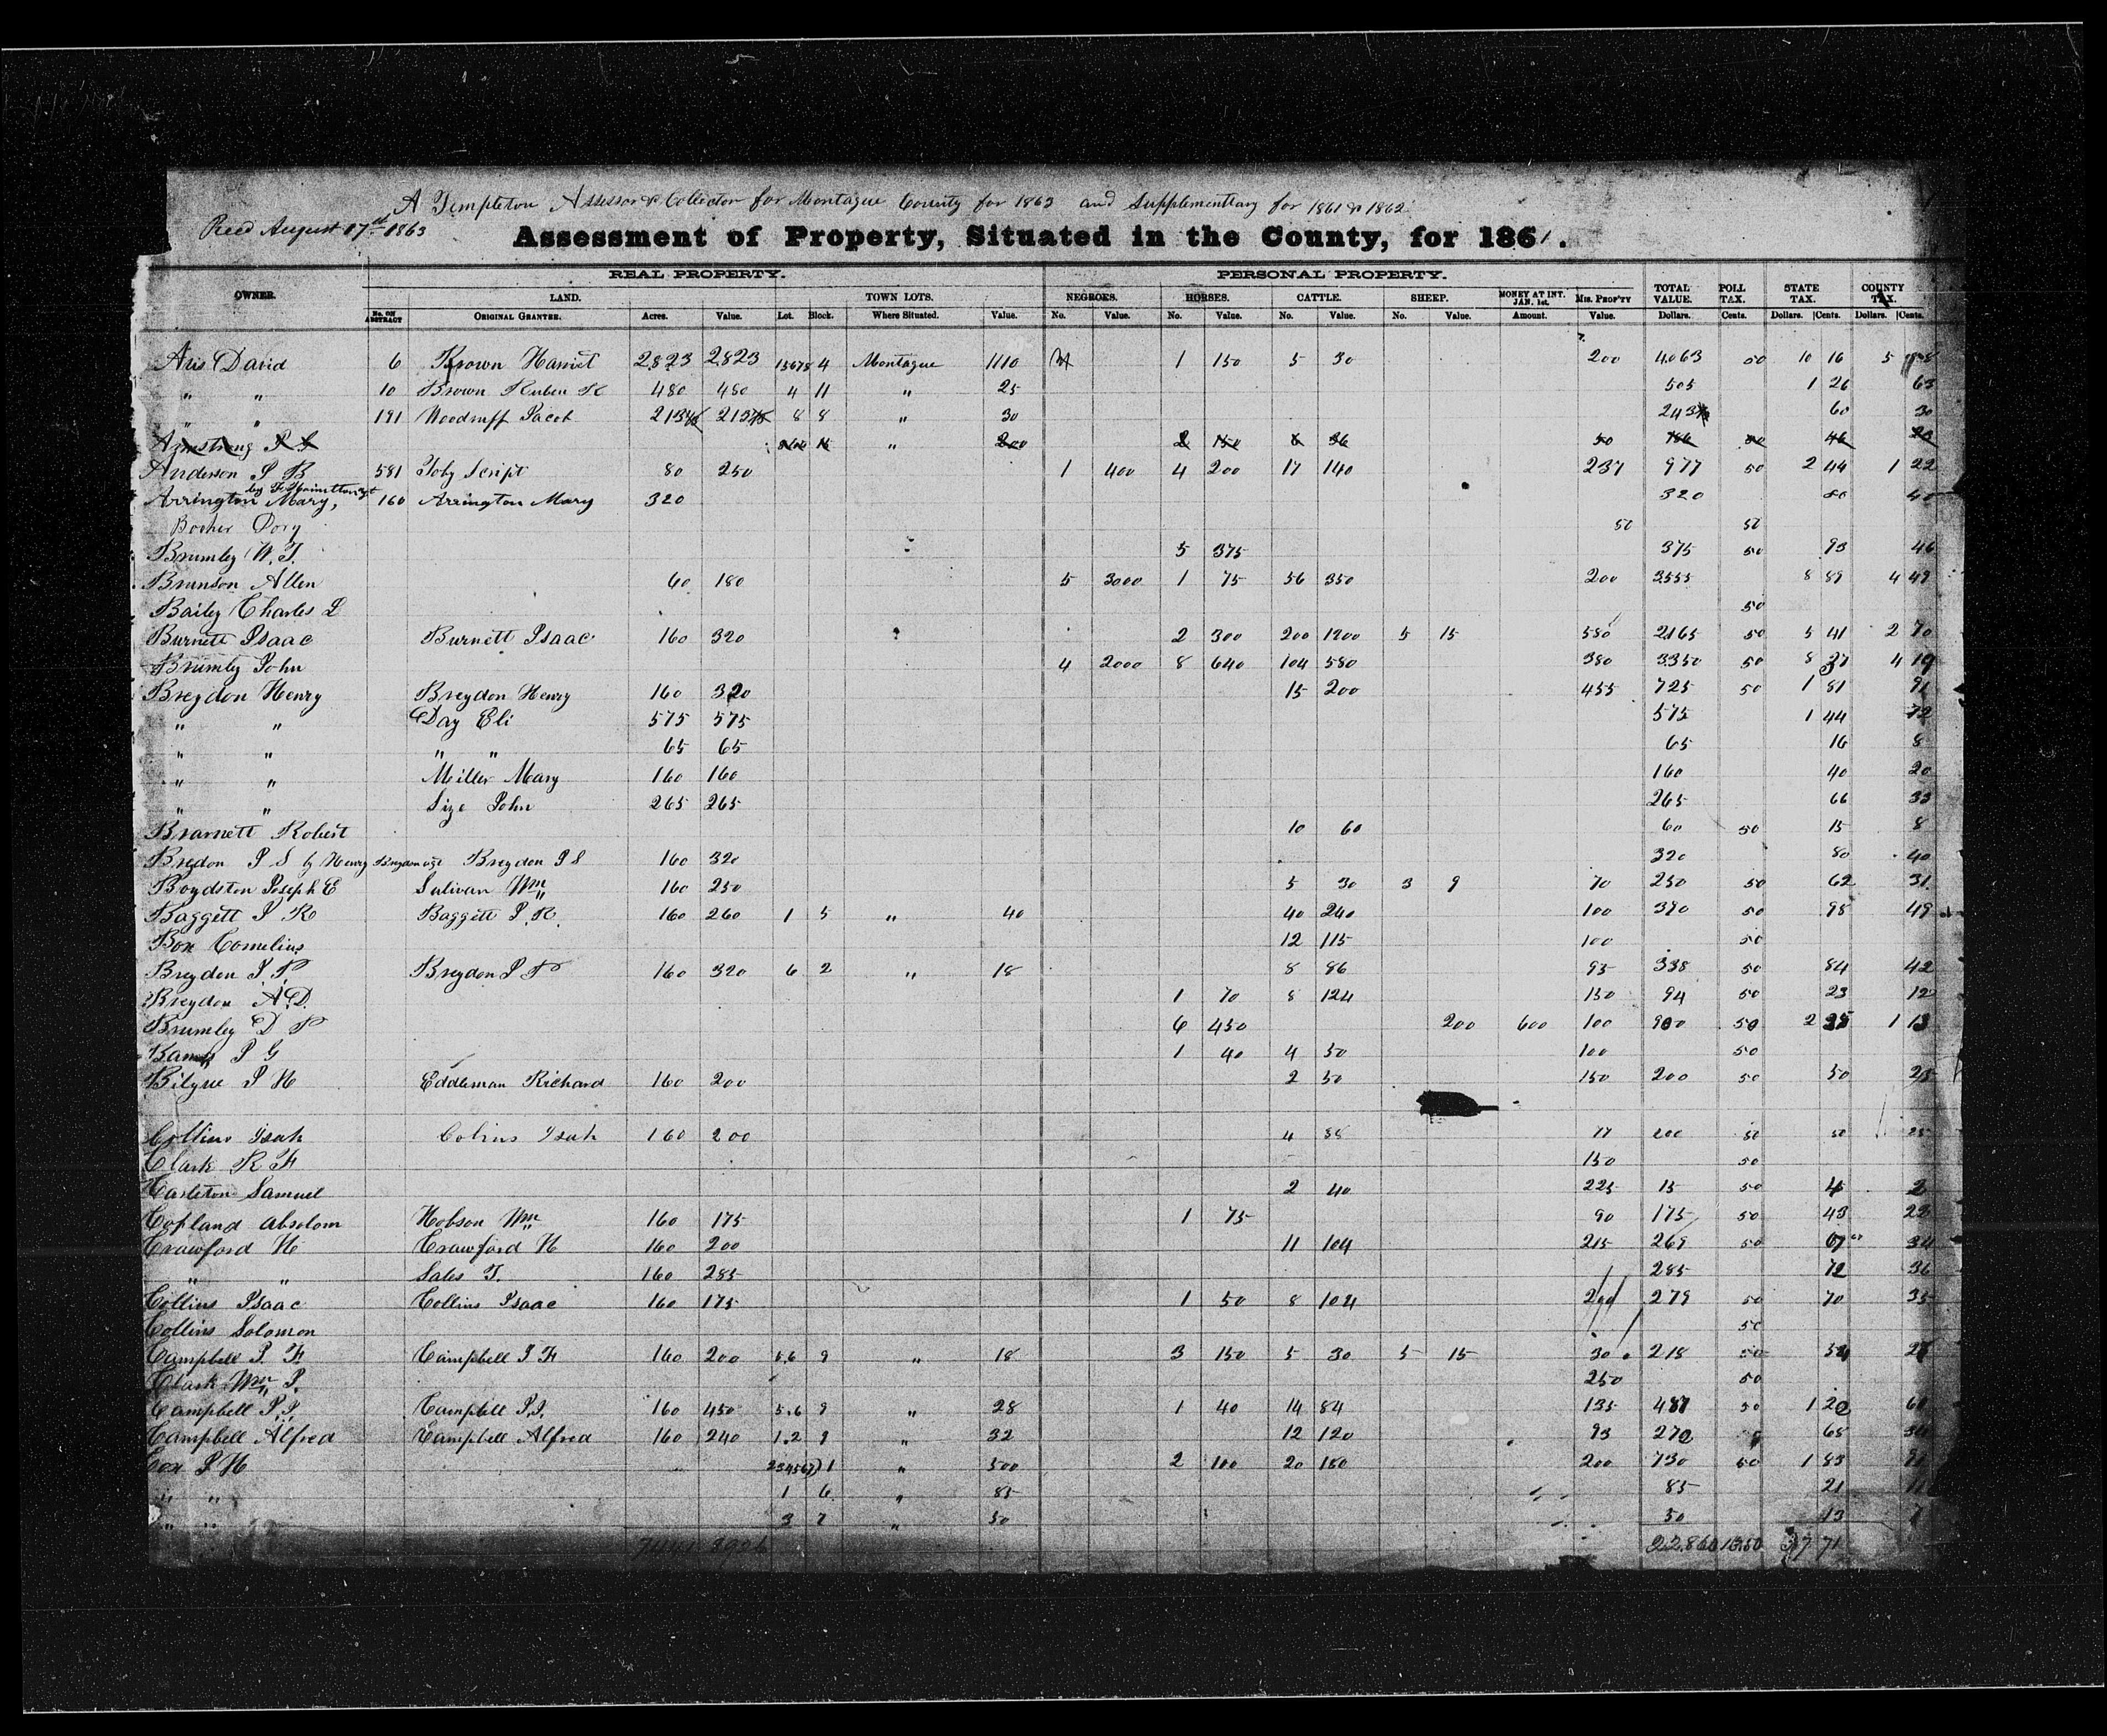 A Templeton Assessor & Collector for Montague County for 1863 and Supplementtary for 1861 & 1862
Recd August 17th 1863
Assessment of Property, Situated in the County, for 1861.
REAL PROPERTY. PERSONAL PROPERTY.
OWNER. LAND. TOWN LOTS. NEGROES. HORSES. CATTLE. SHEEP. MONEY AT INT. JAN. 1st. MIS. PROP'TY TOTAL VALUE. POLL TAX. STATE TAX. COUNTY TAX.
No. ON ABSTRACT ORIGINAL GRANTEE. Acres. Value. Lot. Block. Where Situated. Value. No. Value. No. Value. No. Value. No. Value. Amount. Value. Dollars. Cents. Dollars. Cents. Dollars. Cents.
Aris David 6 Brown Harriet 2823 2823 13678 4 Montague 1110 1 150 5 30 200 4063 50 10 16 5
" " 10 Brown Ruben R 480 480 4 11 " 25 505 1 26 63
" " 191 Woodruff Jacob 213 213 8 8 " 30 243 60 30
Armstrong " 200 2 150 6 36 50 186 50 46 23
Anderson J B 581 Toby Script 80 250 1 400 4 200 17 140 237 977 50 2 44 1 22
by F. Hamilton agt
Arrington Mary, 160 Arrington Mary 320 320 80 40
Booher Dory 50 50
Brumley W. T. 5 375 375 50 93 46
Brunson Allen 60 180 5 3000 1 75 56 350 200 3555 8 89 4 49
Bailey Charles L 50
Burnett Isaac Burnett Isaac 160 320 2 300 200 1200 5 15 580 2165 50 5 41 2 70
Brumley John 4 2000 8 640 104 580 380 3350 50 8 37 4 19
Breydon Henry Breydon Henry 160 320 15 200 455 725 50 1 81 91
" " Day Eli 575 575 575 1 44 72
" " " " 65 65 65 16 8
" " Miller Mary 160 160 160 40 20
" " Size John 265 265 265 66 33
Brarnett Robert 10 60 60 50 15 8
Bredon J S by Henry Breydon agt Breydon J S 160 320 320 80 40
Boydston Joseph E Sulivan Wm 160 250 5 30 3 9 70 250 50 62 31
Baggett J. R Baggett J. R. 160 260 1 5 " 40 40 240 100 390 50 98 49
Box Cornelius 12 115 100 50
Breydon J. P Breydon J P 160 320 6 2 " 18 8 86 95 338 50 84 42
Breydon A. D. 1 70 8 124 150 94 50 23 12
Brumley D P 6 450 200 600 100 900 50 2 25 1 13
J G 1 40 4 50 100 50
Bilyue J H Eddleman Richard 160 200 2 50 150 200 50 50 25
Collins Isah Colins Isah 160 200 4 88 77 200 50 50 25
Clark R H 150 50
Carleton Samuel 2 40 225 15 50 4 2
Copland Absolom Hobson Wm 160 175 1 75 90 175 50 43 22
Crawford H Crawford H 160 200 11 104 215 269 50 67 34
" " Sales T. 160 285 285 72 36
Collins Isaac Collins Isaac 160 175 1 50 8 104 200 279 50 70 35
Collins Solomon 50
Campbell J. H Campbell J H 160 200 5.6 9 " 18 3 150 5 30 5 15 30 218 50 54 27
Clark Wm J. 250 50
Campbell J. J. Campbell J. J. 160 450 5.6 9 " 28 1 40 14 84 135 487 50 1 22 61
Campbell Alfred Campbell Alfred 160 240 1.2 9 " 32 12 120 93 272 68 34
Cox J H 234567 1 " 500 2 100 20 180 200 730 50 1 83 91
" " 1 6 " 85 85 21 11
" " 3 7 " 50 50 13 7
7441 8926 22860 1350 37 71